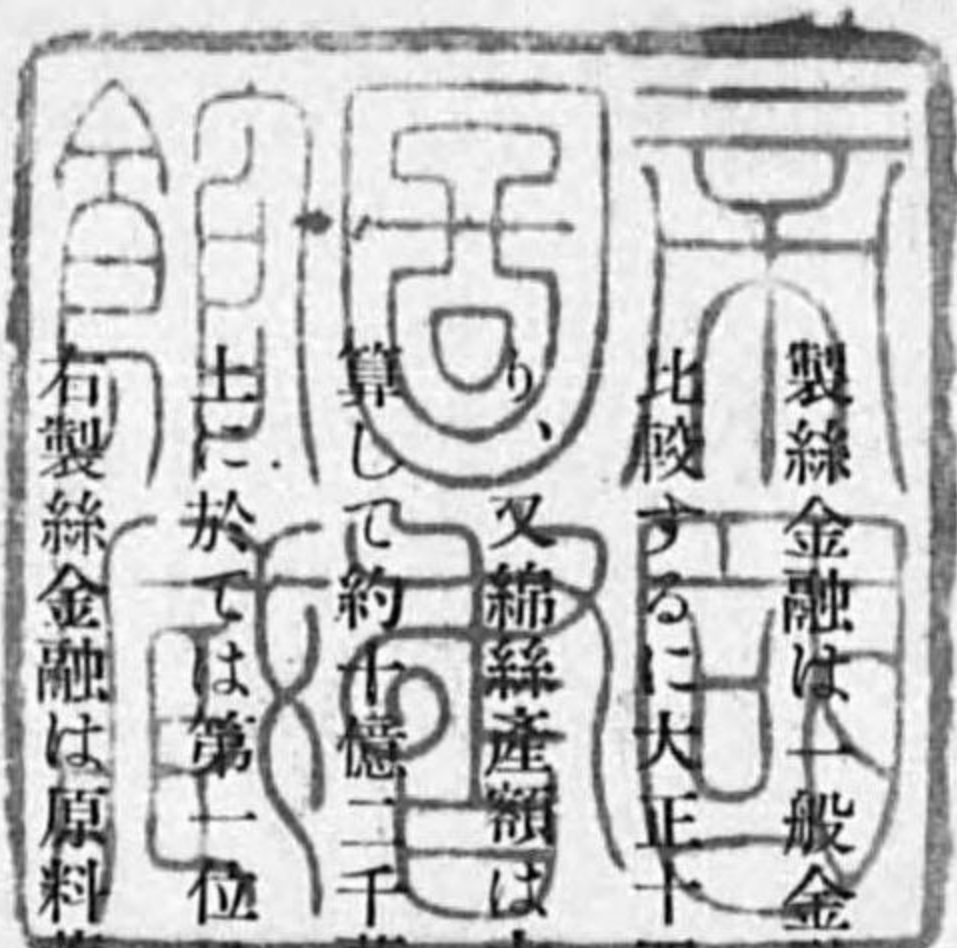 帝國圖書館藏
製絲金融は一般金
比較するに大正十
り、又綿絲產額は
算して約十億二千
上に於ては第一位
右製絲金融は原料